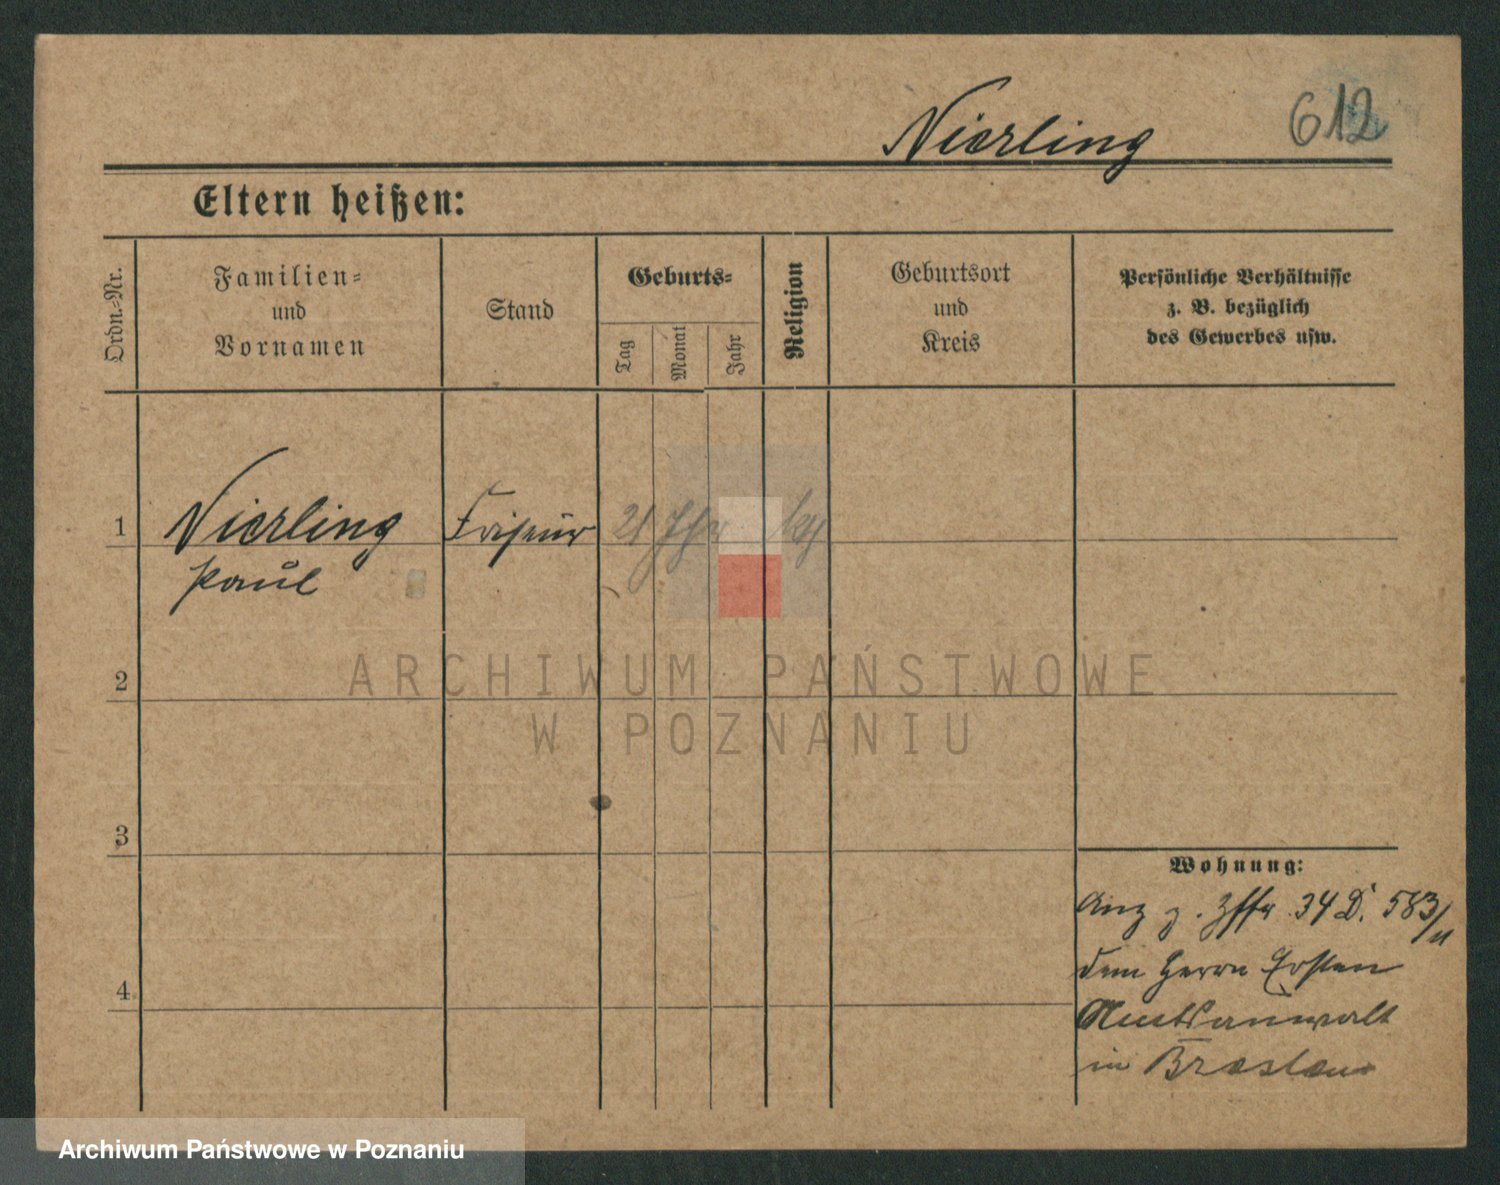 Nierling 612
Eltern heißen:
Ordn.-Nr.
Familien-
und
Vornamen
Stand
Geburts-
Tag
Monat
Jahr
Religion
Geburtsort
und
Kreis
Persönliche Verhältnisse
z. B. bezüglich
des Gewerbes usw.
1 Nierling Friseur 21
Paul
ARCHIWUM PAŃSTWOWE
2
W POZNANIU
3
Wohnung:
34 D. 583/11
4 dem Herrn Ersten
Amtsanwalt
in Breslau
Archiwum Państwowe w Poznaniu